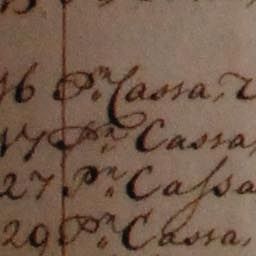 16 Pr. Cassa, 2
17 Pr. Cassa,
27 Pr. Caſsa
29 Pr. Cassa,